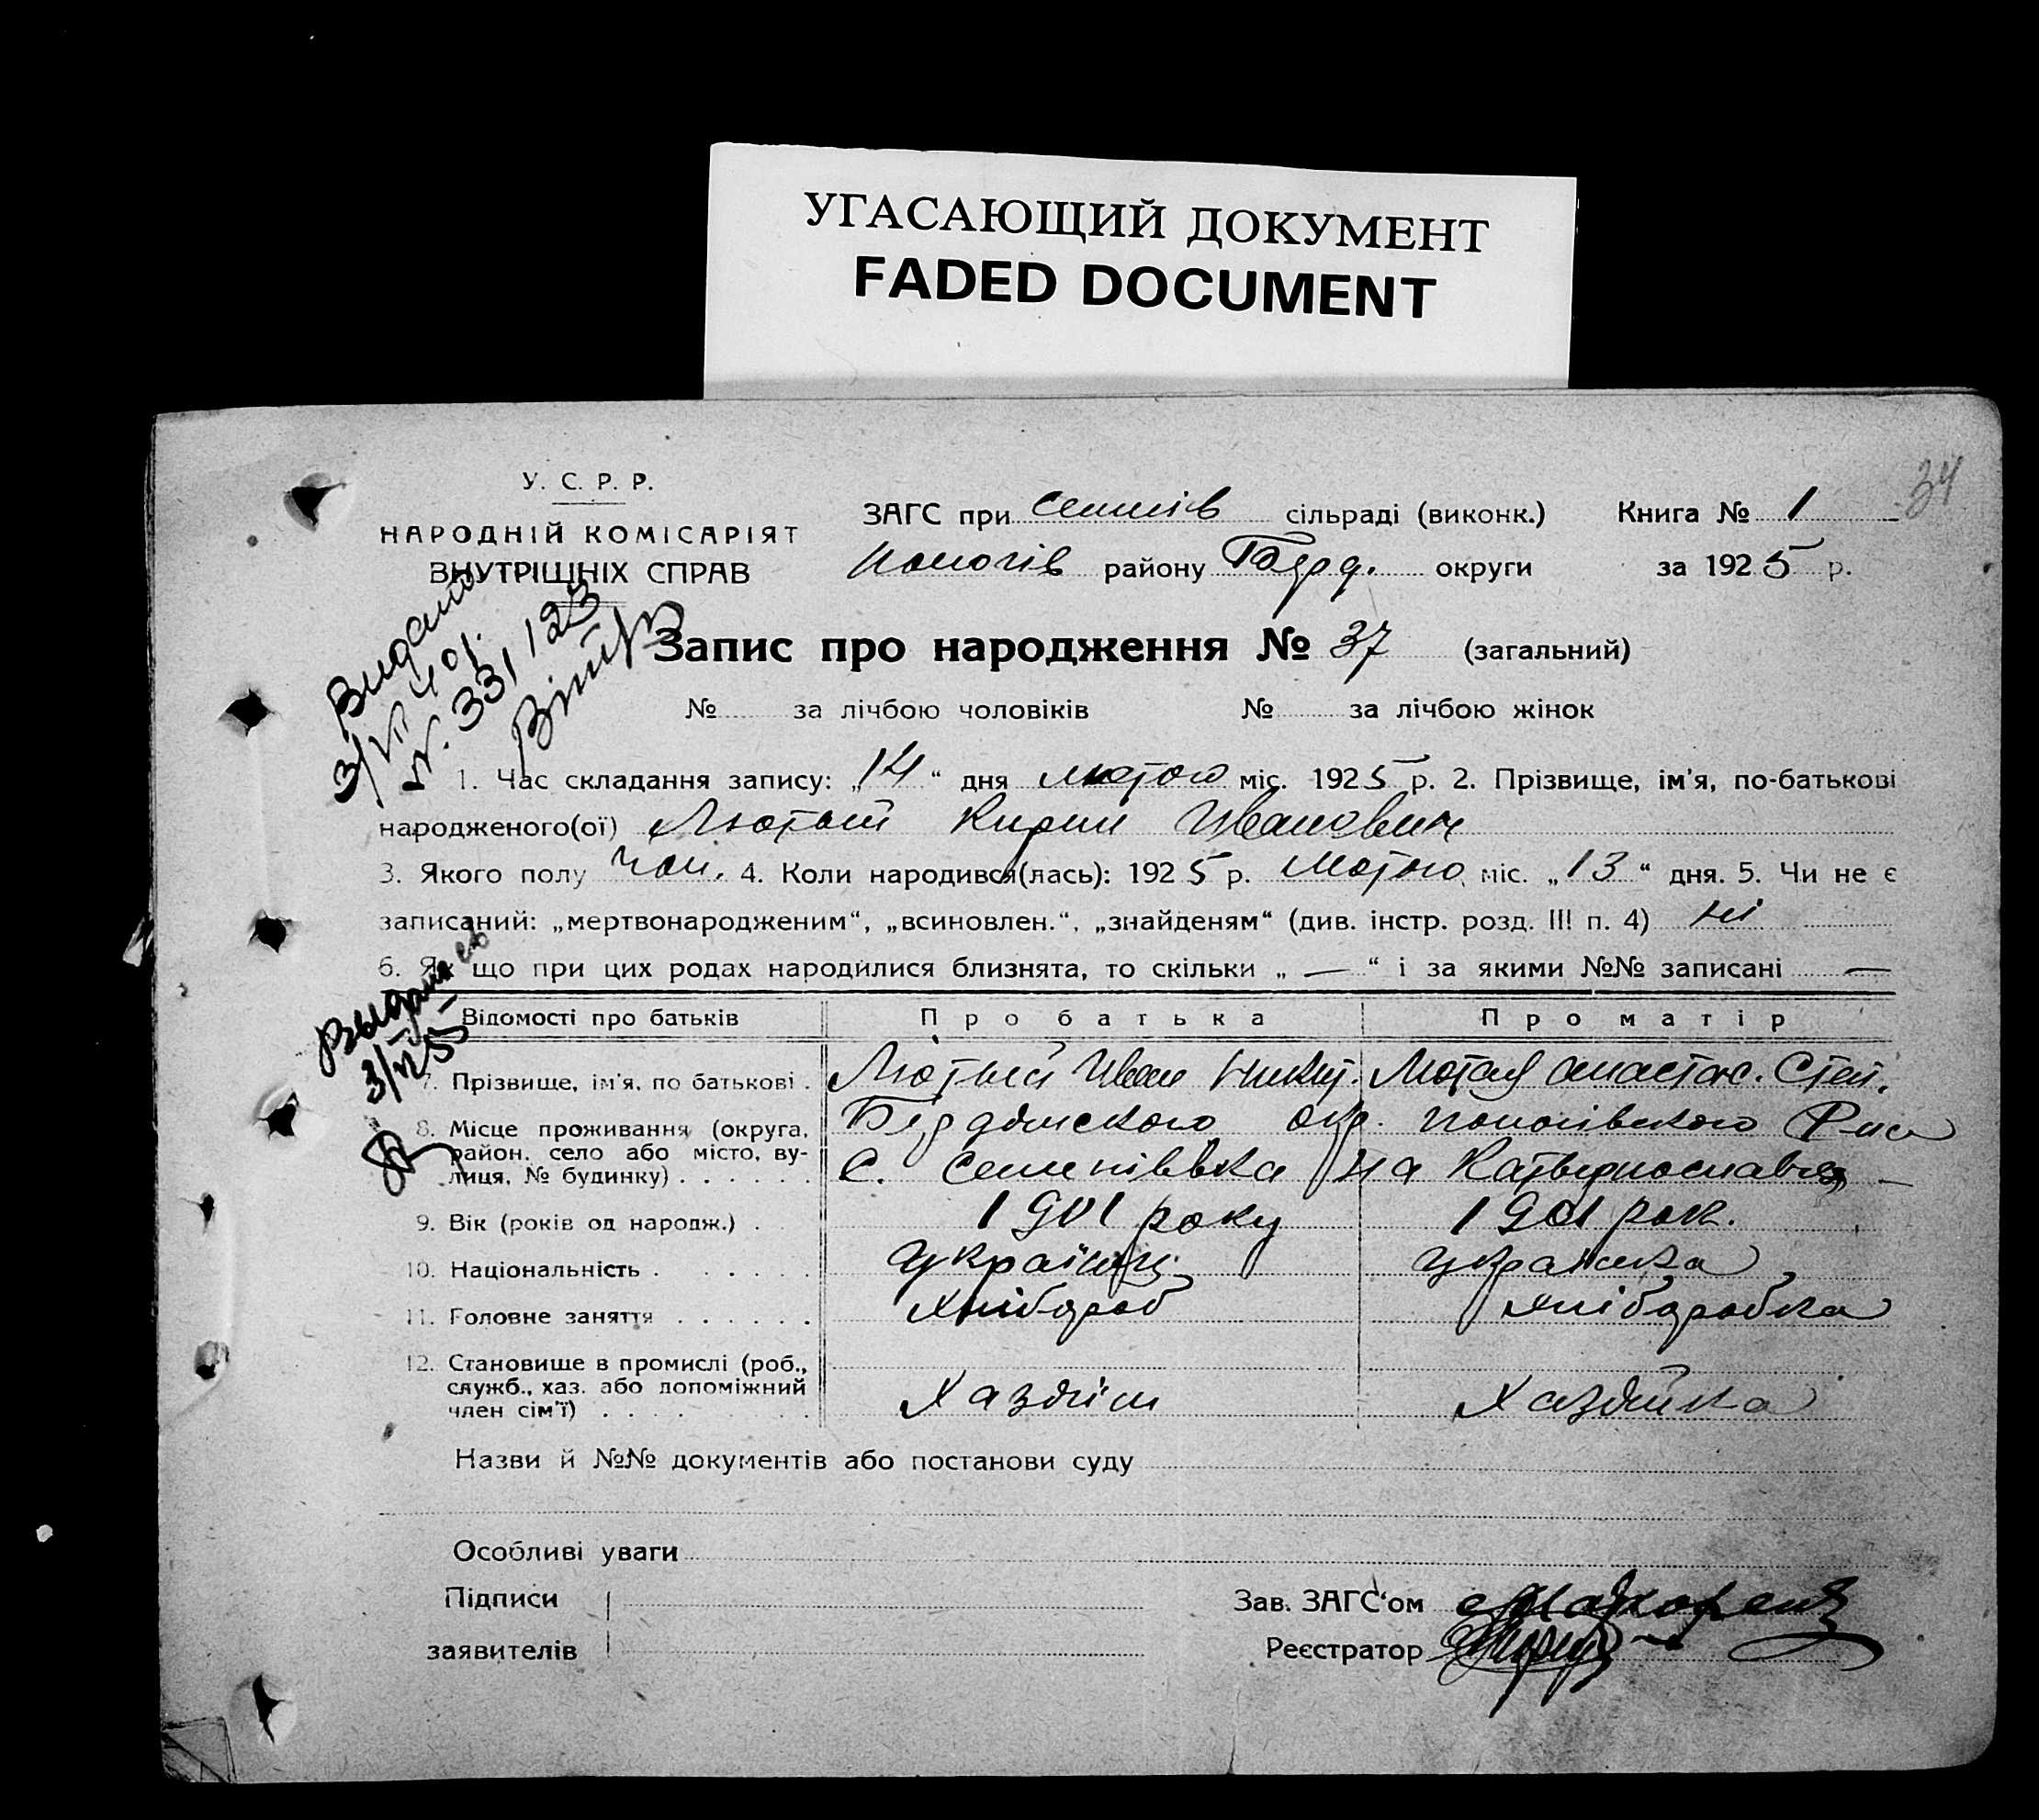 УГАСАЮЩИЙ ДОКУМЕНТ
FADED DOCUMENT
34
У. С. Р. Р.
НАРОДНІЙ КОМІСАРІЯТ
ВНУТРІШНІХ СПРАВ
ЗАГС при сільраді (виконк.) Книга № 1
району округи за 1925 р.
Видано
Запис про народження № 37 (загальний)
№ за лічбою чоловіків № за лічбою жінок
1. Час складання запису: „14“ дня лютого міс. 1925 р. 2. Прізвище, ім'я, по-батькові
народженого(ої) Лютый Кирил Иванович
3. Якого полу чол. 4. Коли народився(лась): 1925 р. Лютого міс. „13“ дня. 5. Чи не є
записаний: „мертвонародженим“, „всиновлен.“, „знайденям“ (див. інстр. розд. III п. 4) ні
6. Як що при цих родах народилися близнята, то скільки „—“ і за якими №№ записані —
Відомості про батьків Про батька Про матір
7. Прізвище, ім'я, по батькові . Лютый Иван Никит. Лютая Анастас. Степ.
8. Місце проживання (округа, район, село або місто, вулиця, № будинку) . . . . . . Бердянского окр. Пологівського
С. Семенівка
9. Вік (років од народж.) . 1901 року 1901 рок.
10. Національність . . . . . Українец Українка
11. Головне заняття . . . . . . Хлібороб Хліборобка
12. Становище в промислі (роб., служб., хаз. або допоміжний член сім'ї) . . . . Хазяїн Хазяйка
Назви й №№ документів або постанови суду
Особливі уваги
Підписи
заявителів
Зав. ЗАГС'ом
Реєстратор